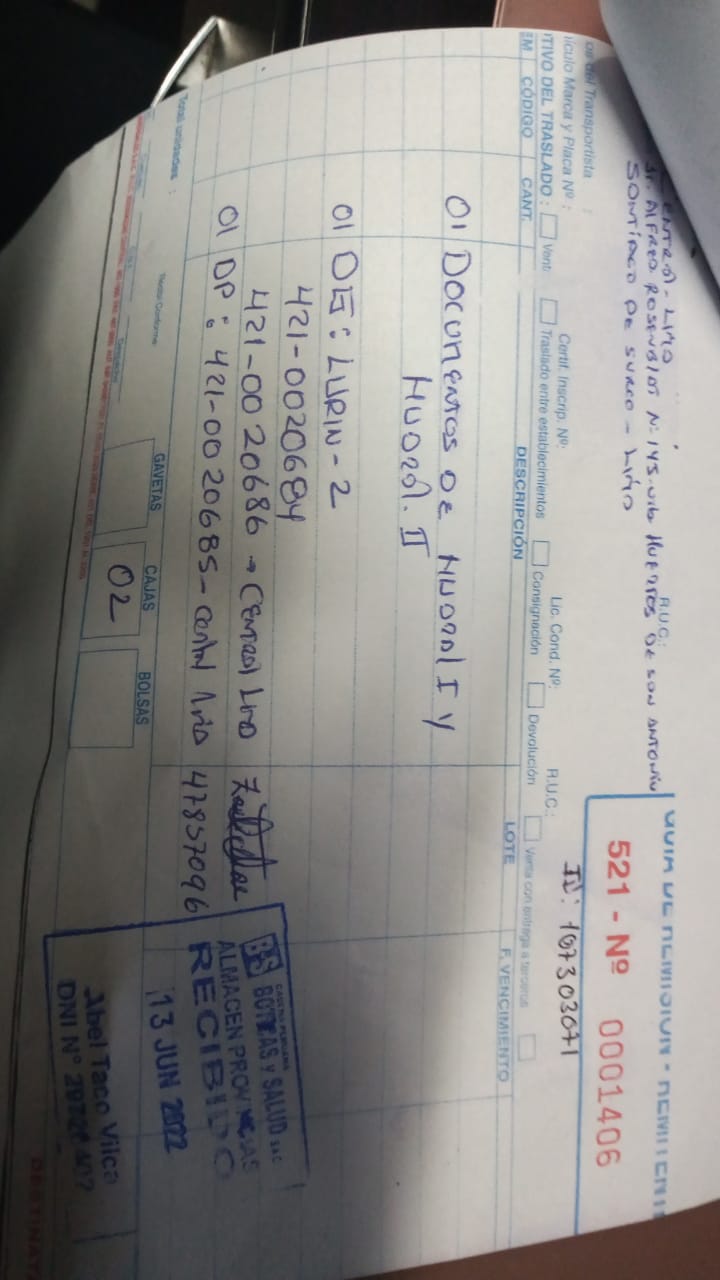 GUIA DE REMISION - REMITENTE
521 - Nº 0001406
ID: 167303071
Central - Lima
Jr. ALFREDO ROSENBLAT N: 145. URB HUERTOS DE SAN ANTONIO
SANTIAGO DE SURCO - LIMA
R.U.C.:
os del Transportista :
R.U.C.:
ículo Marca y Placa Nº :
Certif. Inscrip. Nº:
Lic. Cond. Nº:
TIVO DEL TRASLADO :
Venta
Traslado entre establecimientos
Consignación
Devolución
Venta con entrega a terceros
EM
CÓDIGO
CANT.
DESCRIPCIÓN
LOTE
F. VENCIMIENTO
01 Documentos De HUARAL I Y
HUARAL. II
01 DE: LURIN - 2
421-0020684
421-0020686 → Central Lima
01 DP: 421-0020685 - Central Lima 47857096
Total unidades :
GAVETAS
CAJAS
BOLSAS
02
BS BOTICAS Y SALUD SAC
ALMACEN PROVINCIAS
RECIBIDO
13 JUN 2022
Abel Taco Vilca
DNI Nº
DESTINATA